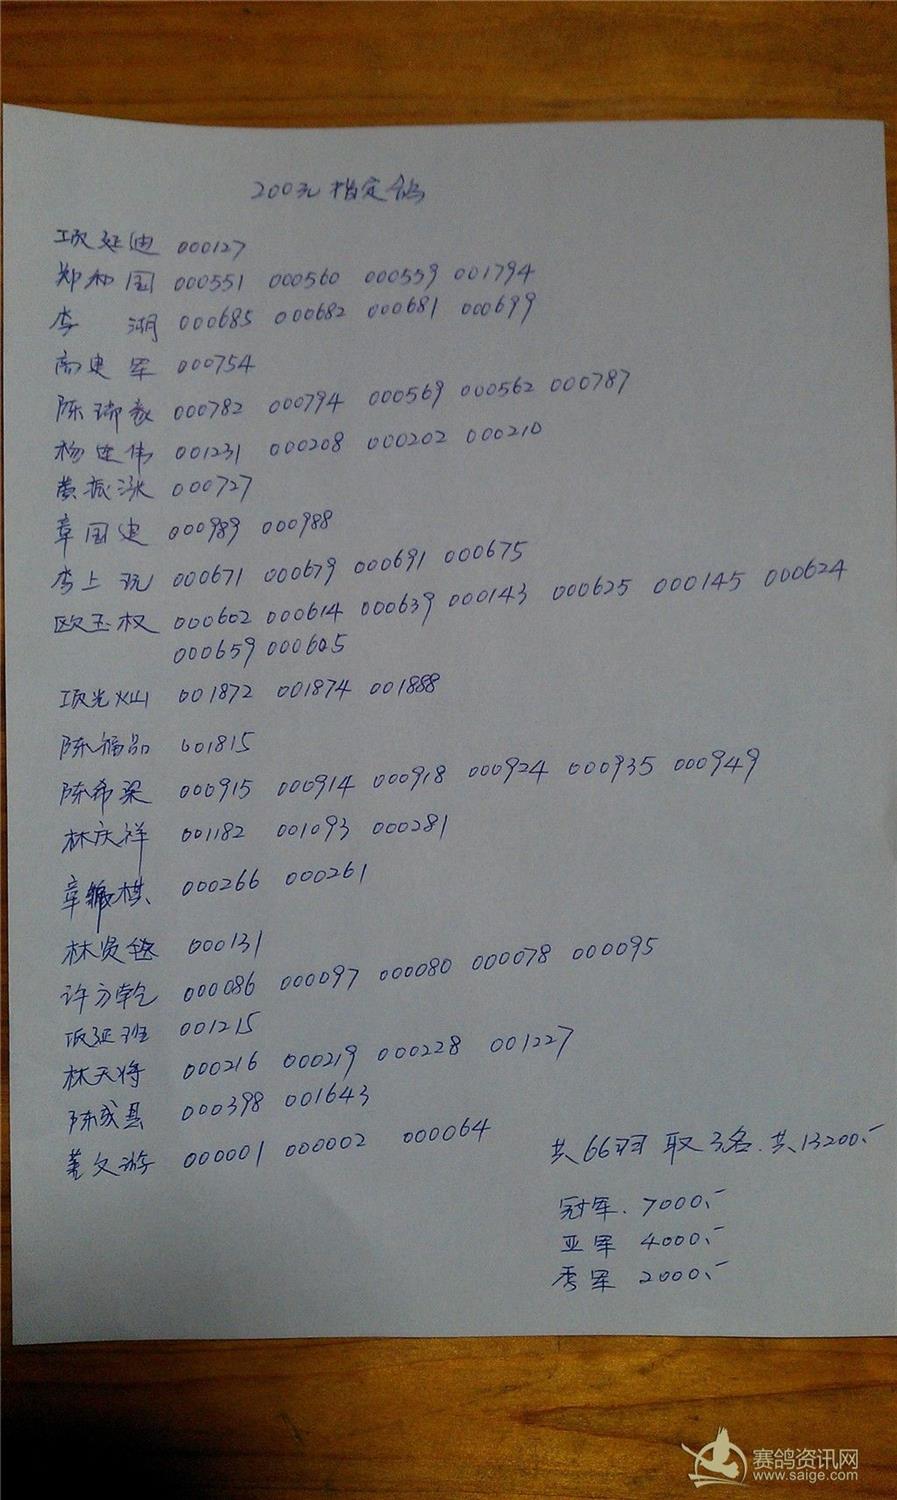 200元指定鸽
项延迪 000127
郑和国 000551 000560 000559 001794
李湖 000685 000682 000681 000699
南建军 000754
陈瑞敏 000782 000794 000569 000562 000787
杨建伟 001231 000208 000202 000210
黄振涨 000727
章国建 000989 000988
李上玩 000671 000679 000691 000675
欧玉权 000602 000614 000639 000143 000625 000145 000624
000659 000605
项光灿 001872 001874 001888
陈福品 001815
陈希梁 000915 000914 000918 000924 000935 000949
林庆祥 001182 001093 000281
章 棋 000266 000261
林贤 000131
许方乾 000086 000097 000080 000078 000095
项延班 001215
林天将 000216 000219 000228 001227
陈成县 000398 001643
姜文游 000001 000002 000064
共66羽 取3名.共13200.-
冠军. 7000.-
亚军 4000.-
季军 2000.-
赛鸽资讯网
www.saige.com